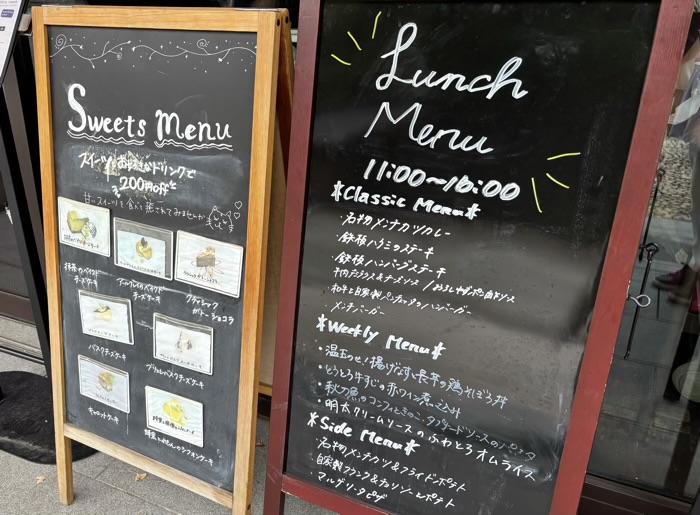 Sweets Menu
スイーツとお好きなドリンクで
200円OFF
甘いスイーツを食べて
抹茶のベイクド
チーズケーキ
アールグレイのベイクド
チーズケーキ
クラシック
ガトーショコラ
バスクチーズケーキ
ブリュレバスクチーズケーキ
キャロットケーキ
シフォンケーキ
Lunch
Menu
11:00~16:00
*Classic Menu*
・名物メンチカツカレー
・鉄板ハラミのステーキ
・鉄板ハンバーグステーキ
・和牛と自家製パンチェッタのハンバーガー
・メンチバーガー
*Weekly Menu*
・温玉のせ!揚げなすと長芋の鶏そぼろ丼
・とろとろ牛すじの赤ワイン煮込み
・秋刀魚のコンフィときのこ
・明太クリームソースのふわとろオムライス
*Side Menu*
・名物メンチカツ&フライドポテト
・自家製フランク&チョリソー&ポテト
・マルゲリータピザ